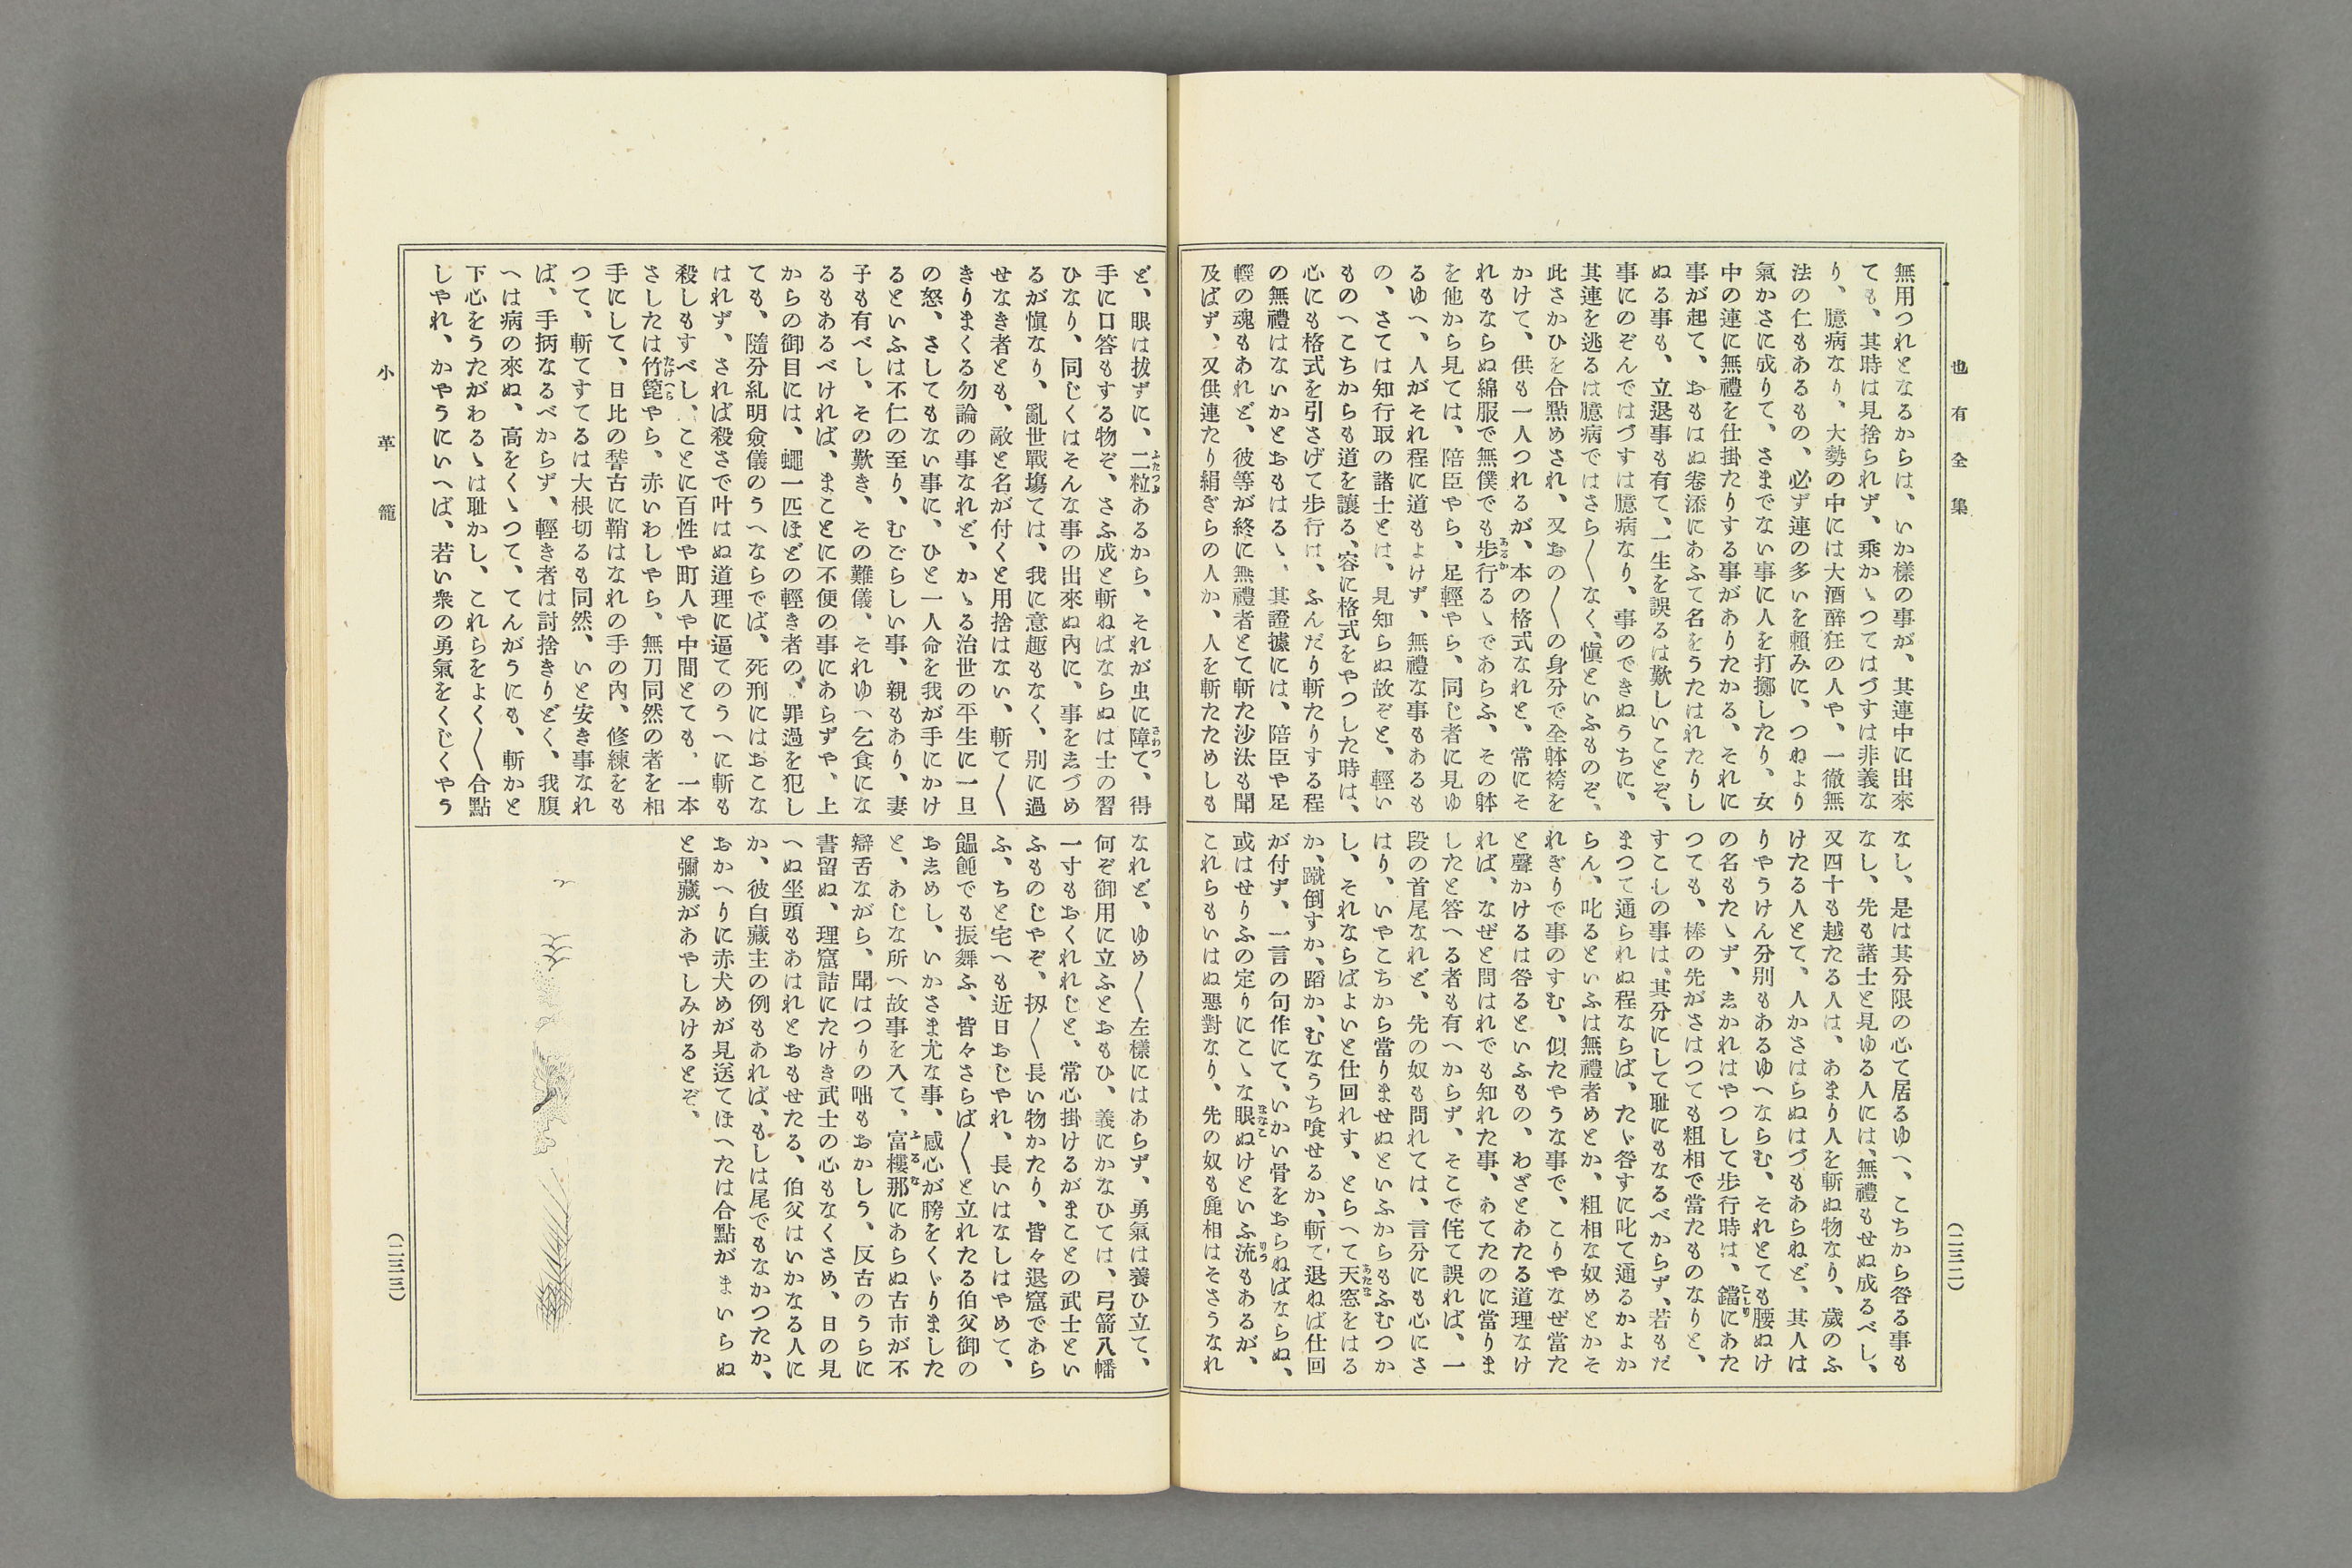 也有全集
(二三二)
無用つれとなるからは、いか樣の事が、其連中に出來
ても、其時は見捨られず、乘かヽつてはづすは非義な
り、臆病なり、大勢の中には大酒醉狂の人や、一徹無
法の仁もあるもの、必ず連の多いを賴みに、つねより
氣かさに成りて、さまでない事に人を打擲したり、女
中の連に無禮を仕掛たりする事がありたかる、それに
事が起て、おもはぬ卷添にあふて名をうたはれたりし
ぬる事も、立退事も有て、一生を誤るは歎しいことぞ、
事にのぞんではづすは臆病なり、事のできぬうちに、
其連を逃るは臆病ではさら〳〵なく、愼といふものぞ、
此さかひを合點めされ、又おの〳〵の身分で全躰袴を
かけて、供も一人つれるが、本の格式なれと、常にそ
れもならぬ綿服で無僕でも步行(あるか)るヽであらふ、その躰
を他から見ては、陪臣やら、足輕やら、同じ者に見ゆ
るゆへ、人がそれ程に道もよけず、無禮な事もあるも
の、さては知行取の諸士とは、見知らぬ故ぞと、輕い
ものへこちからも道を讓る、容に格式をやつした時は、
心にも格式を引さげて步行は、ふんだり斬たりする程
の無禮はないかとおもはるヽ、其證據には、陪臣や足
輕の魂もあれど、彼等が終に無禮者とて斬た沙汰も聞
及ばず、又供連たり絹ぎらの人か、人を斬たためしも
なし、是は其分限の心て居るゆへ、こちから咎る事も
なし、先も諸士と見ゆる人には、無禮もせぬ成るべし、
又四十も越たる人は、あまり人を斬ぬ物なり、歲のふ
けたる人とて、人かさはらぬはづもあらねど、其人は
りやうけん分別もあるゆへならむ、それとても腰ぬけ
の名もたヽず、志かれはやつして步行時は、鐺(こじり)にあた
つても、棒の先がさはつても粗相で當たものなりと、
すこしの事は、其分にして耻にもなるべからず、若もだ
まつて通られぬ程ならば、たヾ咎すに叱て通るかよか
らん、叱るといふは無禮者めとか、粗相な奴めとかそ
れぎりで事のすむ、似たやうな事で、こりやなぜ當た
と聲かけるは咎るといふもの、わざとあたる道理なけ
れば、なぜと問はれでも知れた事、あてたのに當りま
したと答へる者も有へからず、そこで侘て誤れば、一
段の首尾なれど、先の奴も問れては、言分にも心にさ
はり、いやこちから當りませぬといふからもふむつか
し、それならばよいと仕回れす、とらへて天窓(あたま)をはる
か、蹴倒すか、蹈か、むなうち喰せるか、斬て退ねば仕回
が付ず、一言の句作にて、いかい骨をおらねばならぬ、
或はせりふの定りにこヽな眼(まなこ)ぬけといふ流(りう)もあるが、
これらもいはぬ惡對なり、先の奴も麁相はそさうなれ
小革籠
(二三三)
ど、眼は拔ずに、二粒(ふたつぶ)あるから、それが虫に障(さわつ)て、得
手に口答もする物ぞ、さふ成と斬ねばならぬは士の習
ひなり、同じくはそんな事の出來ぬ內に、事を志づめ
るが愼なり、亂世戰場ては、我に意趣もなく、別に過
せなき者とも、敵と名が付くと用捨はない、斬て〳〵
きりまくる勿論の事なれど、かヽる治世の平生に一旦
の怒、さしてもない事に、ひと一人命を我が手にかけ
るといふは不仁の至り、むごらしい事、親もあり、妻
子も有べし、その歎き、その難儀、それゆへ乞食にな
るもあるべければ、まことに不便の事にあらずや、上
からの御目には、蠅一匹ほどの輕き者の、罪過を犯し
ても、隨分糺明僉儀のうへならでば、死刑にはおこな
はれず、されば殺さで叶はぬ道理に逼てのうへに斬も
殺しもすべし、ことに百性や町人や中間とても、一本
さしたは竹箆(たけへら)やら、赤いわしやら、無刀同然の者を相
手にして、日比の䅲古に鞘はなれの手の內、修練をも
つて、斬てすてるは大根切るも同然、いと安き事なれ
ば、手柄なるべからず、輕き者は討捨きりどく、我腹
へは病の來ぬ、高をくヽつて、てんがうにも、斬かと
下心をうたがわるヽは耻かし、これらをよく〳〵合點
しやれ、かやうにいへば、若い衆の勇氣をくじくやう
なれど、ゆめ〳〵左樣にはあらず、勇氣は養ひ立て、
何ぞ御用に立ふとおもひ、義にかなひては、弓箭八幡
一寸もおくれれじと、常心掛けるがまことの武士とい
ふものじやぞ、扨〳〵長い物かたり、皆々退窟であら
ふ、ちと宅へも近日おじやれ、長いはなしはやめて、
饂飩でも振舞ふ、皆々さらば〳〵と立れたる伯父御の
お志めし、いかさま尤な事、感心が膀をくヾりました
と、あじな所へ故事を入て、富樓那(ふるな)にあらぬ古市が不
辯舌ながら、聞はつりの咄もおかしう、反古のうらに
書留ぬ、理窟詰にたけき武士の心もなくさめ、日の見
へぬ坐頭もあはれとおもせたる、伯父はいかなる人に
か、彼白藏主の例もあれば、もしは尾でもなかつたか、
おかへりに赤犬めが見送てほへたは合點がまいらぬ
と彌藏があやしみけるとぞ、